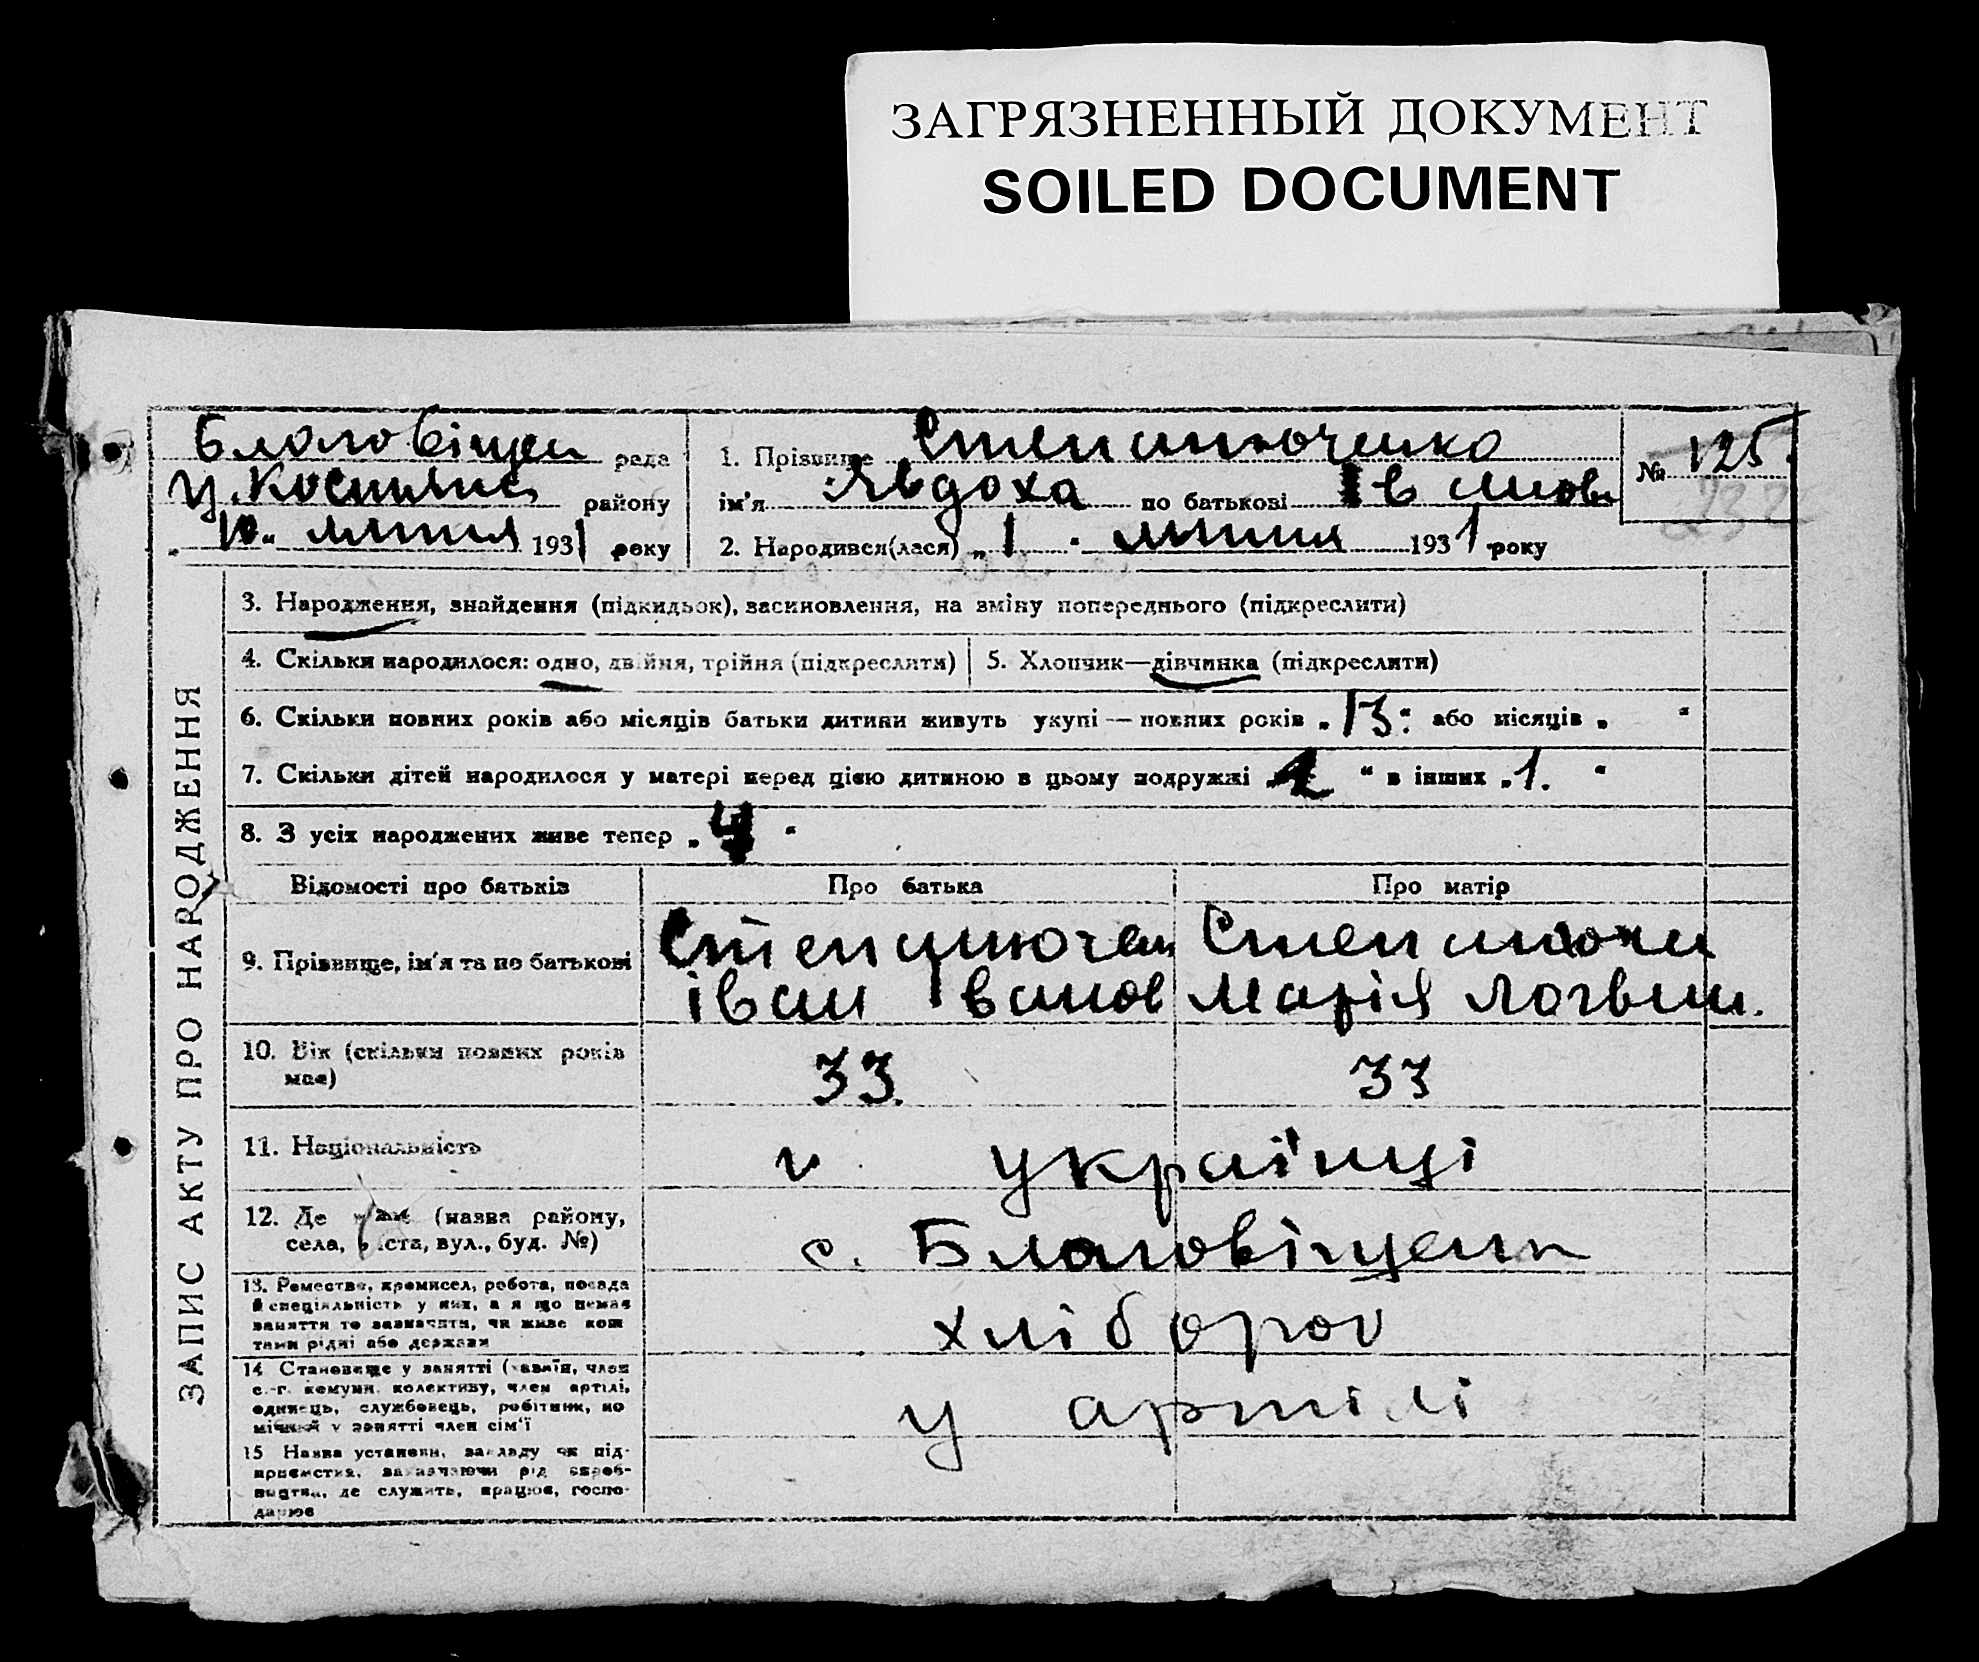 ЗАГРЯЗНЕННЫЙ ДОКУМЕНТ
SOILED DOCUMENT
Благовіщен рада
району
„10“ липня 1931 року
1. Прізвище Степанюченко
ім'я Явдоха по батькові Іванов
2. Народився(лася) „1“ липня 1931 року
№ 125.
232
ЗАПИС АКТУ ПРО НАРОДЖЕННЯ
3. Народження, знайдення (підкидьок), засиновлення, на зміну попереднього (підкреслити)
4. Скільки народилося: одно, двійня, трійня (підкреслити)
5. Хлопчик—дівчинка (підкреслити)
6. Скільки повних років або місяців батьки дитини живуть укупі — повних років „13“ або місяців „ “
7. Скільки дітей народилося у матері перед цією дитиною в цьому подружжі „ “ в інших „1.“
8. З усіх народжених живе тепер „4“
Відомості про батьків
Про батька
Про матір
9. Прізвище, ім'я та по батькові
Степанючен
Іван Іванов
Степанючен
Марія Логвин.
10. Вік (скільки повних років має)
33.
33
11. Національність
українці
12. Де живе (назва району,
села, міста, вул., буд. №)
с. Благовіщенк
13. Ремество, промисел, робота, посада
й спеціяльність у них, а якщо немає
заняття то зазначити, чи живе кош
тами рідні або держави
хлібороб
14 Становище у занятті (хазяїн, член
с.-г. комуни, колективу, член артілі,
одинець, службовець, робітник, по
мічний у занятті член сім'ї
у артілі
15 Назва установи, закладу чи під-
приємства, зазначаючи рід вироб-
ництва, де служить, працює, госпо-
дарює